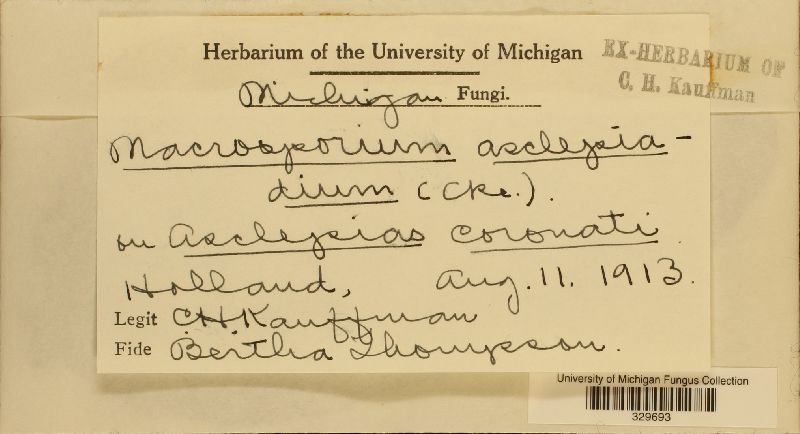 Herbarium of the University of Michigan
EX-HERBARIUM OF
C. H. Kauffman
Michigan Fungi.
Macrosporium asclepia-
dium (Cke.).
on Asclepias coronati
Holland, Aug. 11. 1913.
Legit C.H. Kauffman
Fide Bertha Thompson.
University of Michigan Fungus Collection
329693